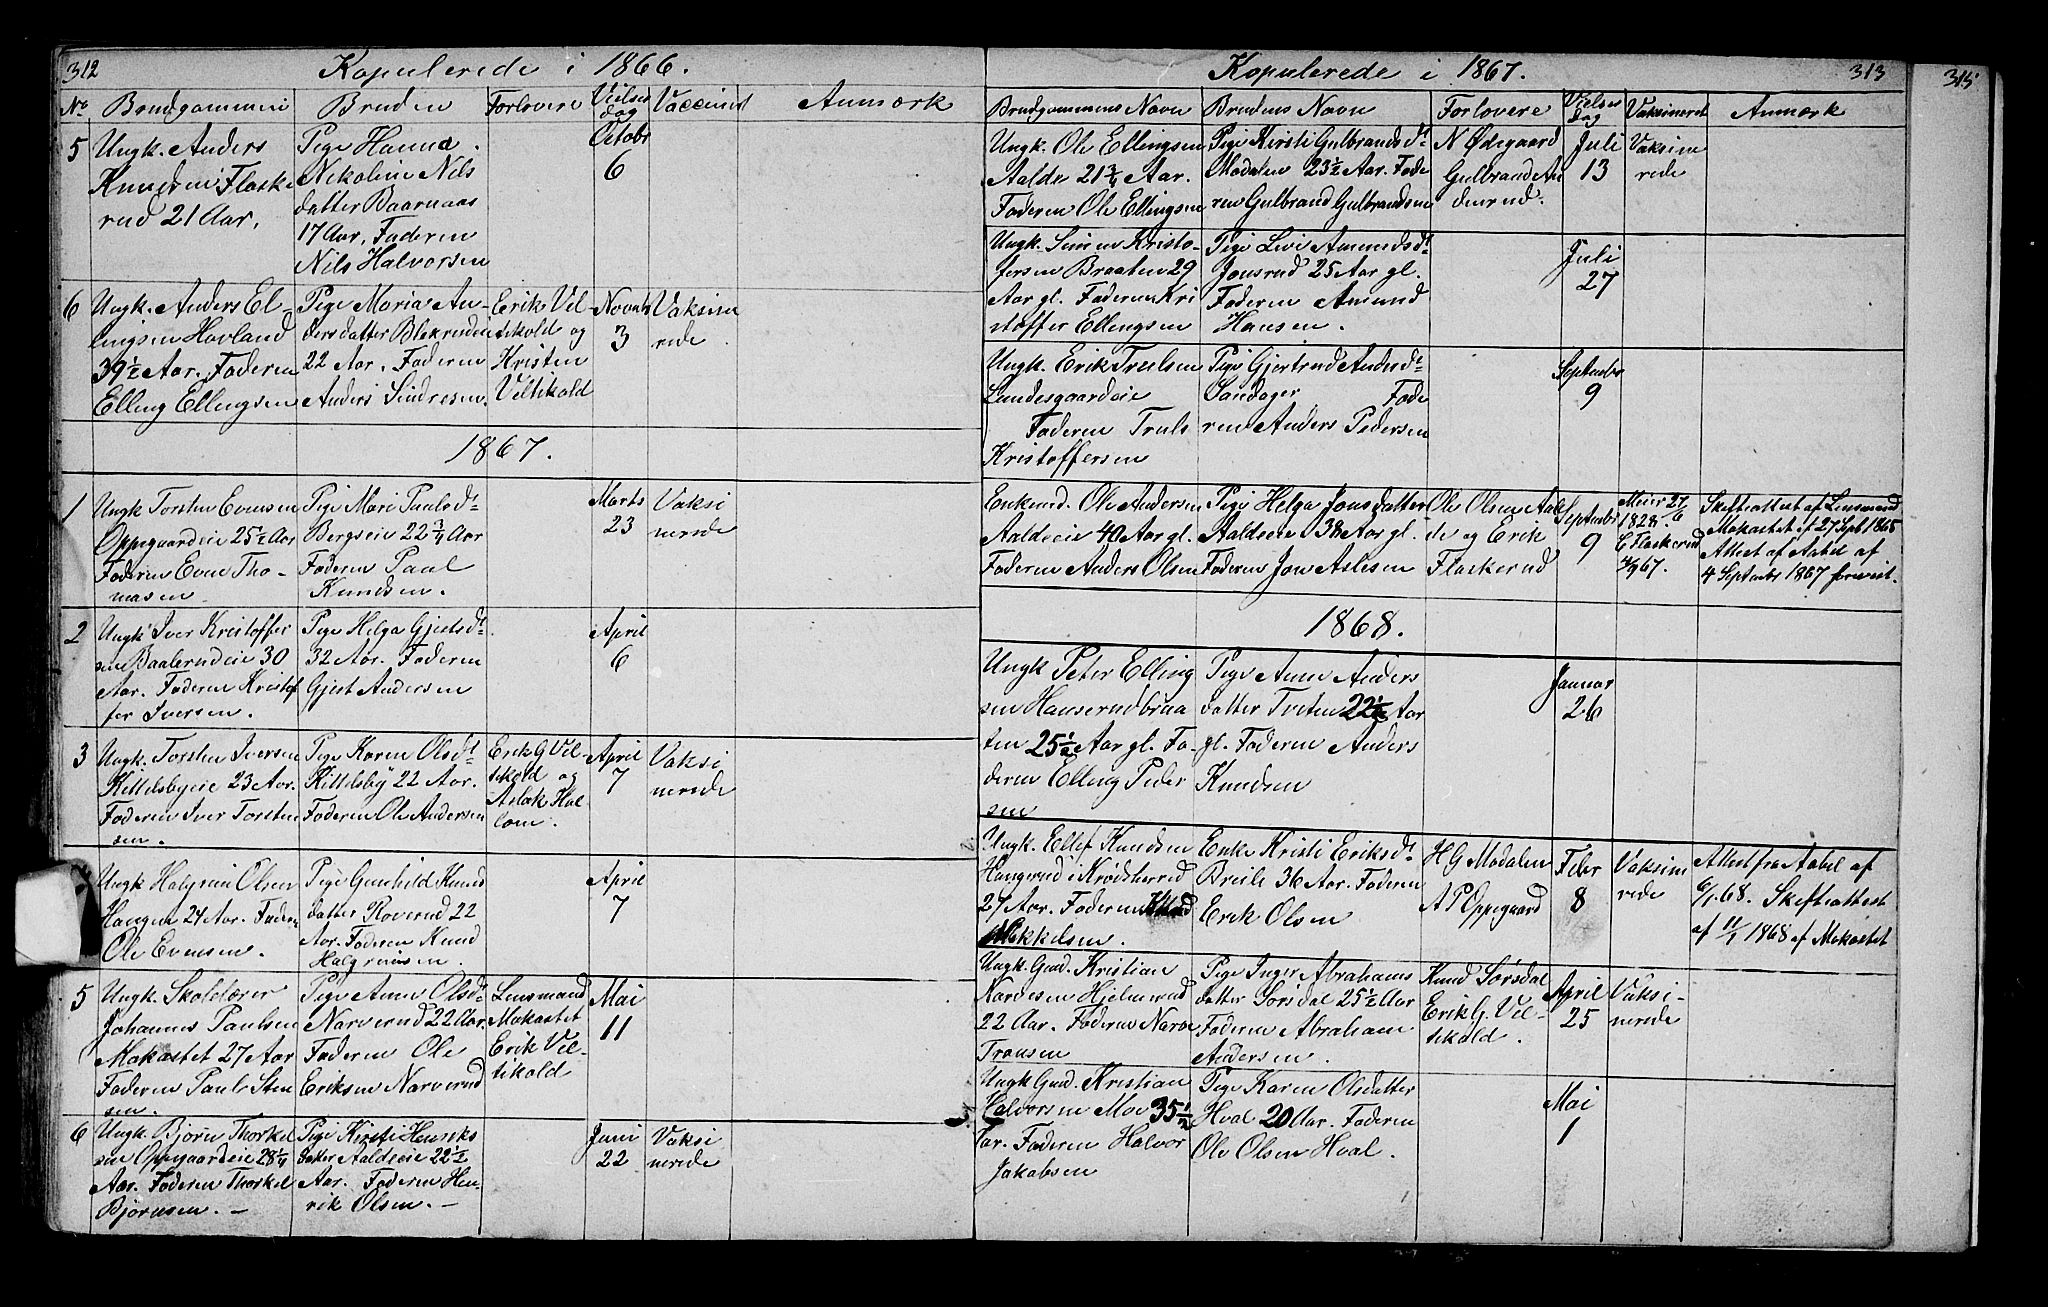 312
Kopulerede i 1866.
No. Brudgommen Bruden Forlovere Vielses dag Vaccineret Anmærk
5
Ungk. Anders
Knudsen Flaske
rud 21 Aar.
Pige Hanna
Nikoline Nils
datter Baarnaas
17 Aar. Faderen
Nils Halvorsen
Octobr
6
6
Ungk. Anders El-
lingsen Hovland
39½ Aar. Faderen
Elling Ellingsen
Pige Maria An-
dersdatter Blekruden
22 Aar. Faderen
Anders Sindresen.
Erik Vel-
tikold og
Kristen
Veltikold
Novbr
3
Vaksine
rede
1867.
1
Ungk Torsten Evensen
Oppegaardeie 25½ Aar
Faderen Even Tho-
masen
Pige Mari Paalsdt
Bergseie 22 ¾ Aar
Faderen Paal
Knudsen.
Marts
23
Vaksi
nerede
2
Ungk Iver Kristoffer
sen Baalerudeie 30
Aar. Faderen Kristof
fer Iversen.
Pige Helga Gjestsdt
32 Aar. Faderen
Gjest Andersen
April
6
3
Ungk. Torsten Iversen
Kittelsbyeie 23 Aar.
Faderen Iver Torsten
sen.
Pige Karen Olsdt
Kittelsby 22 Aar.
Faderen Ole Andersen
Erik G Vel-
tikold og
Aslak Hal-
lom.
April
7
Vaksi
nerede
Ungk Halgrim Olsen
Haugen 24 Aar. Fader
Ole Evensen.
Pige Gunhild Knuds
datter Roverud 22
Aar. Faderen Knud
Halgrimsen.
April
7
5
Ungk. Skolelærer
Johannes Paulsen
Makastet 27 Aar
Faderen Paul Sten
sen.
Pige Anne Olsdt
Narverud 22 Aar.
Faderen Ole
Eriksen Narverud
Lensmand
Makastet
Erik Vel-
tikold
Mai
11
6
Ungk. Bjørn Thorkel
sen Oppegaardeie 28¼
Aar. Faderen Thorkel
Bjørnsen. -
Pige Kirsti Henriks
datter Aaldeeie 22½
Aar. Faderen Hen-
rik Olsen. -
Juni
22
Vaksi
nerede
Kopulerede i 1867.
313
315
Brudgommens Navn Brudens Navn Forlovere Vielses dag Vaksineret Anmærk
Ungk. Ole Ellingsen
Aalde 21 ¾ Aar.
Faderen Ole Ellingsen
Pige Kirsti Gulbrandsdt
Modalen 23½ Aar. Fade
ren Gulbrand Gulbrandsen
N Ødegaard
Gulbrand An
denrud.
Juli
13
Vaksine
rede
Ungk. Simen Kristo-
fersen Braaten 29
Aar gl. Faderen Kri
stoffer Ellingsen
Pige Livi Amundsdt
Jonsrud 25 Aar gl.
Faderen Amund
Hansen.
Juli
27
Ungk. Erik Trulsen
Lundesgaardeie
Faderen Truls
Kristoffersen
Pige Gjertrud Andersdt
Sandager Fade
ren Anders Pedersen
Septmbr
9
Enkemd. Ole Andersen
Aaldeeie 40 Aar gl.
Faderen Anders Olsen
Pige Helga Jonsdatter
Aaldeeie 38 Aar gl.
Faderen Jon Aslesen
Ole Olsen Aal
de og Erik
Flaskerud
Septmbr
9
Meier 27/6
1828.
E Flaskerud
4/9 67.
Skifteattest af Lensmand
Makastet af 27 Sept 1865
Attest af Aabel af
4 Septmbr 1867 forevist.
1868.
Ungk Peter Elling
sen Hanserudbraa
ten 25½ Aar gl. Fa-
deren Elling Peder
sen
Pige Anne Anders
datter Treten 22½ Aar
gl. Faderen Anders
Knudsen
Januar
26
Ungk. Ellef Knudsen
Haugerud i Krødsherred
27 Aar. Faderen Knud
Mikkelsen.
Enke Kristi Eriksdt
Breili 36 Aar. Faderen
Erik Olsen
H G Modalen
A P Oppegaard
Febr
8
Vaksine
rede
Attest fra Aabel af
6/1 68. Skifteattest
af 11/1 1868 af Makastet
Ungk. Gmd. Kristian
Narvesen Hjelmerud
22 Aar. Faderen Narve
Tronsen
Pige Inger Abrahams
datter Sørsdal 25½ Aar
Faderen Abraham
Andersen.
Knud Sørsdal
Erik G. Vel-
tikold.
April
25
Vaksi-
nerede
Ungk Gmd. Kristian
Halvorsen Moe 35½
Aar. Faderen Halvor
Jakobsen
Pige Karen Olsdatter
Hval 20 Aar. Faderen
Ole Olsen Hval.
Mai
1